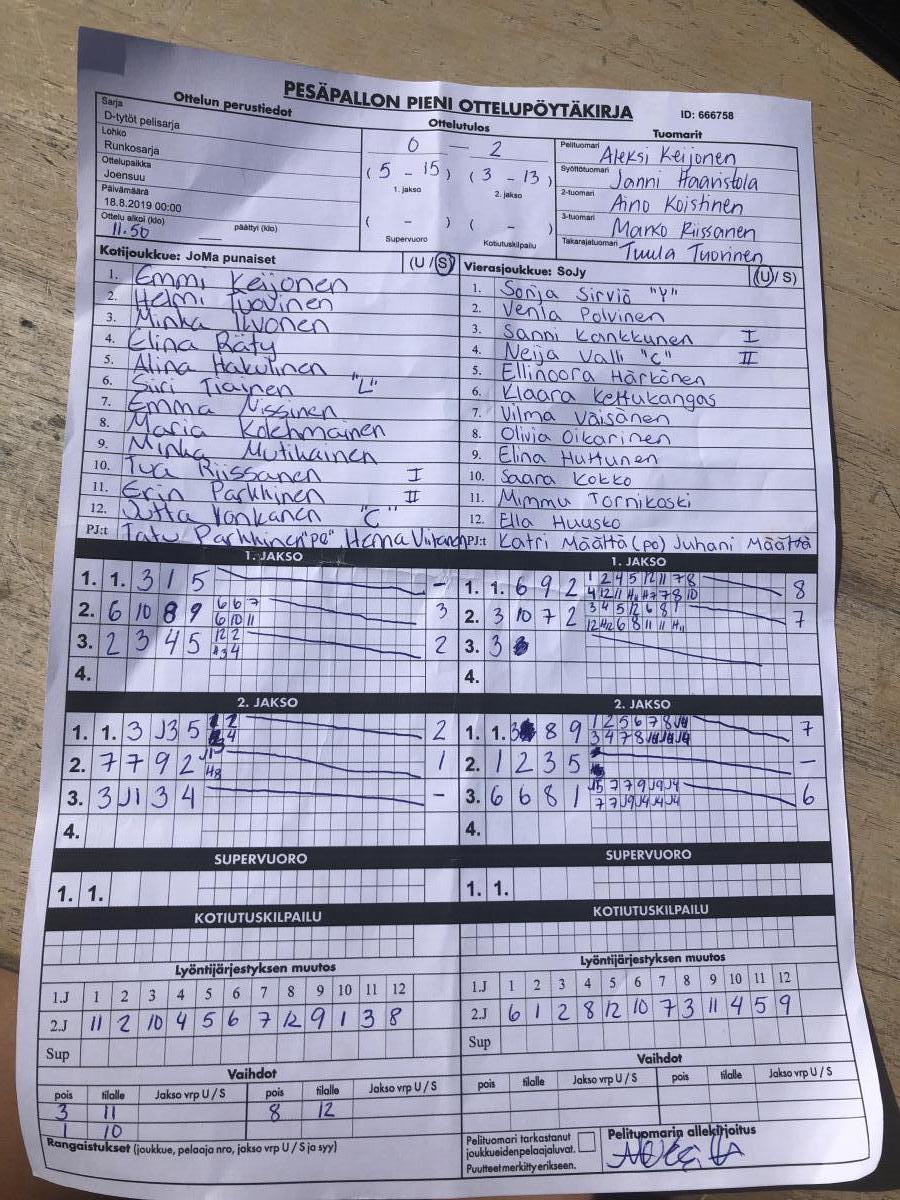 PESÄPALLON PIENI OTTELUPÖYTÄKIRJA
ID: 666758
Ottelun perustiedot
Sarja
D-tytöt pelisarja
Lohko
Runkosarja
Ottelupaikka
Joensuu
Päivämäärä
18.8.2019 00:00
Ottelu alkoi (klo) päättyi (klo)
11.50
Ottelutulos
0 — 2
(5 - 15) (3 - 13)
1. jakso 2. jakso
( - ) ( - )
Supervuoro Kotiutuskilpailu
Tuomarit
Pelituomari Aleksi Keijonen
Syöttötuomari Janni Haaristola
2-tuomari Aino Koistinen
3-tuomari Marko Riissanen
Takarajatuomari Tuula Tuovinen
Kotijoukkue: JoMa punaiset (U / S)
1. Emmi Keijonen
2. Helmi Tuovinen
3. Minka Ilvonen
4. Elina Räty
5. Alina Hakulinen
6. Siiri Tiainen "L"
7. Emma Nissinen
8. Maria Kolehmainen
9. Minka Mutikainen
10. Tua Riissanen I
11. Erin Parkkinen II
12. Jutta Vonkanen "C"
PJ:t Tatu Parkkinen "PO" Henna
Vierasjoukkue: SoJy (U / S)
1. Sonja Sirviö "Y"
2. Venla Polvinen
3. Sanni Kankkunen I
4. Neija Valli "C" II
5. Ellinoora Härkönen
6. Klaara Kettukangas
7. Vilma Väisänen
8. Olivia Oikarinen
9. Elina Huttunen
10. Saara Kokko
11. Mimmu Tornikoski
12. Ella Huusko
PJ:t Katri Määttä (po) Juhani Määttä
1. JAKSO
1. 1. 3 1 5 -
2. 6 10 8 9 6 6 7 3
6 10 11
3. 2 3 4 5 12 2 2
4
4.
1. JAKSO
1. 1. 6 9 2 1 2 4 5 12 11 7 8 8
4 12 11 7 8 10
2. 3 10 7 2 3 4 5 12 6 8 1 7
12 6 8 11 11
3. 3
4.
2. JAKSO
1. 1. 3 J3 5 2 2
4
2. 7 7 9 2 J1 1
H8
3. 3 J1 3 4 -
4.
2. JAKSO
1. 1. 3 8 9 1 2 5 6 7 8 J4 7
3 4 7 8 J4 J4 J4
2. 1 2 3 5 -
3. 6 6 8 1 J5 7 7 J9 J9 J4 6
7 7 J9 J4 J4 J4
4.
SUPERVUORO
1. 1.
SUPERVUORO
1. 1.
KOTIUTUSKILPAILU
KOTIUTUSKILPAILU
Lyöntijärjestyksen muutos
1.J 1 2 3 4 5 6 7 8 9 10 11 12
2.J 11 2 10 4 5 6 7 12 9 1 3 8
Sup
Lyöntijärjestyksen muutos
1.J 1 2 3 4 5 6 7 8 9 10 11 12
2.J 6 1 2 8 12 10 7 3 11 4 5 9
Sup
Vaihdot
pois tilalle Jakso vrp U / S pois tilalle Jakso vrp U / S
3 11 8 12
1 10
Vaihdot
pois tilalle Jakso vrp U / S pois tilalle Jakso vrp U / S
Rangaistukset (joukkue, pelaaja nro, jakso vrp U / S ja syy)
Pelituomari tarkastanut
joukkueiden pelaajaluvat.
Puutteet merkitty erikseen.
Pelituomarin allekirjoitus